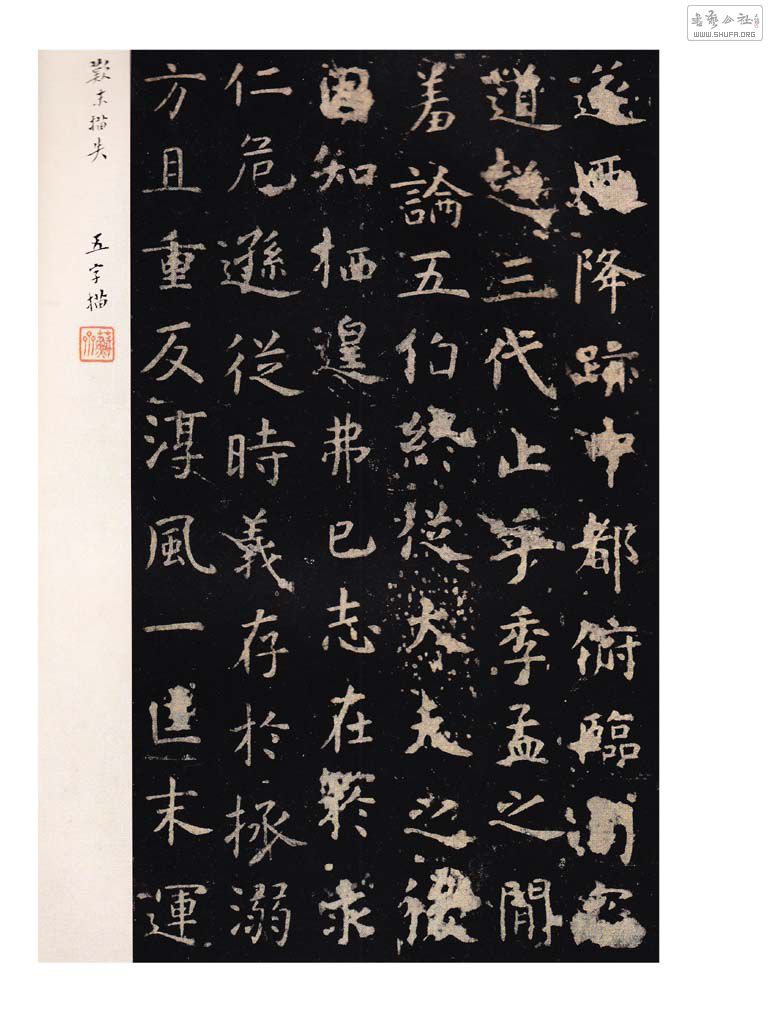 書藝公社
WWW.SHUFA.ORG
遂迺降跡中都俯臨司寇
道超三代止乎季孟之間
羞論五伯終從大夫之後
固知栖遑弗已志在於求
仁危遜從時義存於拯溺
方且重反淳風一匡末運
歎末描失
五字描